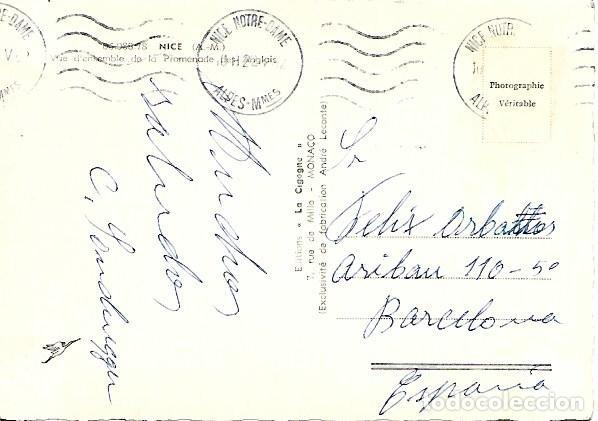 06.088.78 NICE (A.-M.)
Vue d'ensemble de la Promenade des Anglais
NICE NOTRE-DAME
ALPES-MMES
Muchos
saludos
C.
Editions « La Cigogne »
7, rue de Millo - MONACO
(Exclusivité de fabrication André Leconte)
NICE NOTRE
Photographie
Véritable
Sr
Felix Arbattos
Aribau 110-5º
Barcelona
España
todocoleccion.net